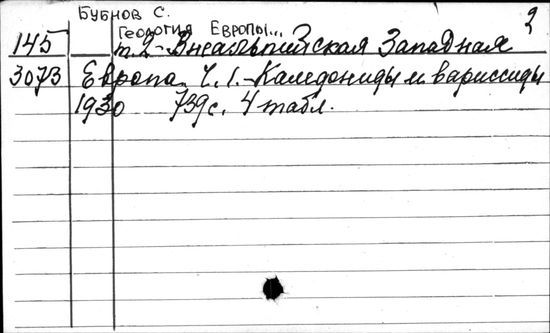 Бубнов С. 3
Геология Европы...
145 т.2 - Внеальпийская Западная
3073 Европа. Ч.1. - Каледониды и вариссиды
1930 739с. 4 табл.